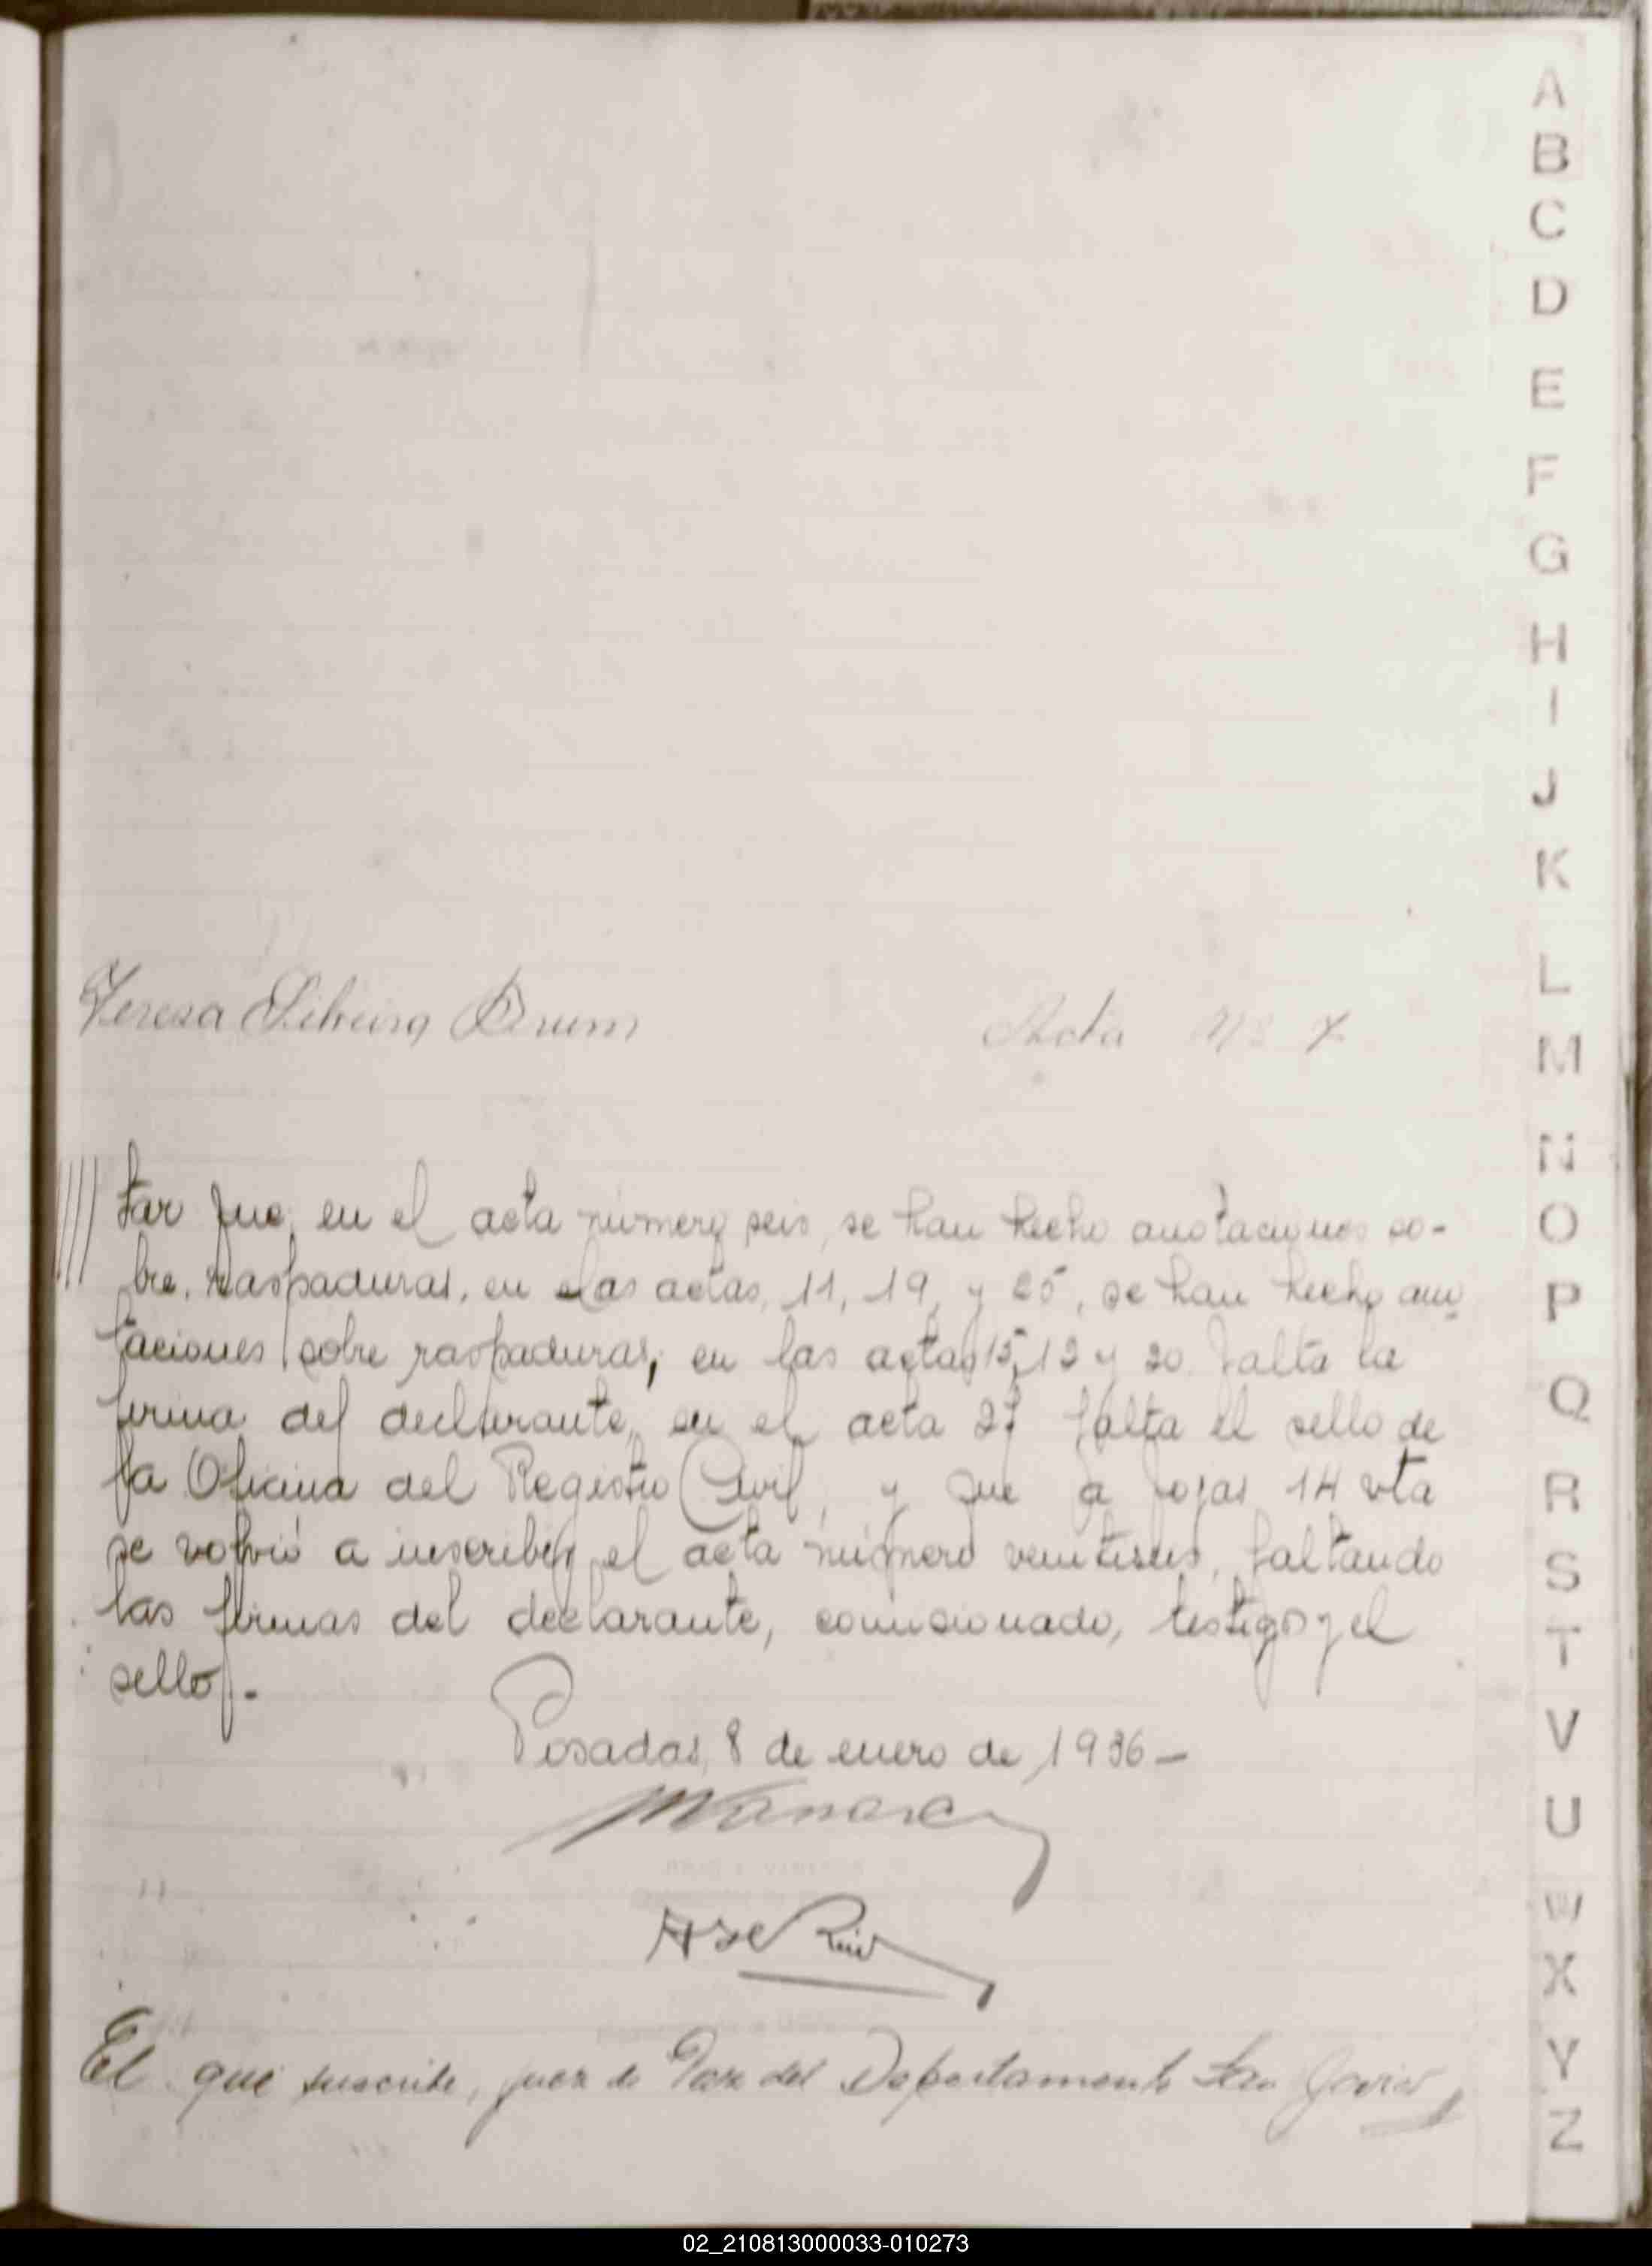 Teresa Brum Acta Nº 7
tar que, en el acta número seis, se han hecho anotaciones so-
bre raspaduras, en las actas, 11, 19, y 25, se han hecho ano
taciones sobre raspaduras, en las actas 15, 12 y 20 falta la
firma del declarante, en el acta falta el sello de
la Oficina del Registro Civil, y que a fojas 14 vta
se volvió a inscribir el acta número ventiseis, faltando
las firmas del declarante, comisionado, testigos y el
sello.-
Posadas, 8 de enero de 1936-
El que suscribe, juez de Paz del Departamento San Javier,
A
B
C
D
E
F
G
H
I
J
K
L
M
N
O
P
Q
R
S
T
V
U
W
X
Y
Z
02_210813000033-010273